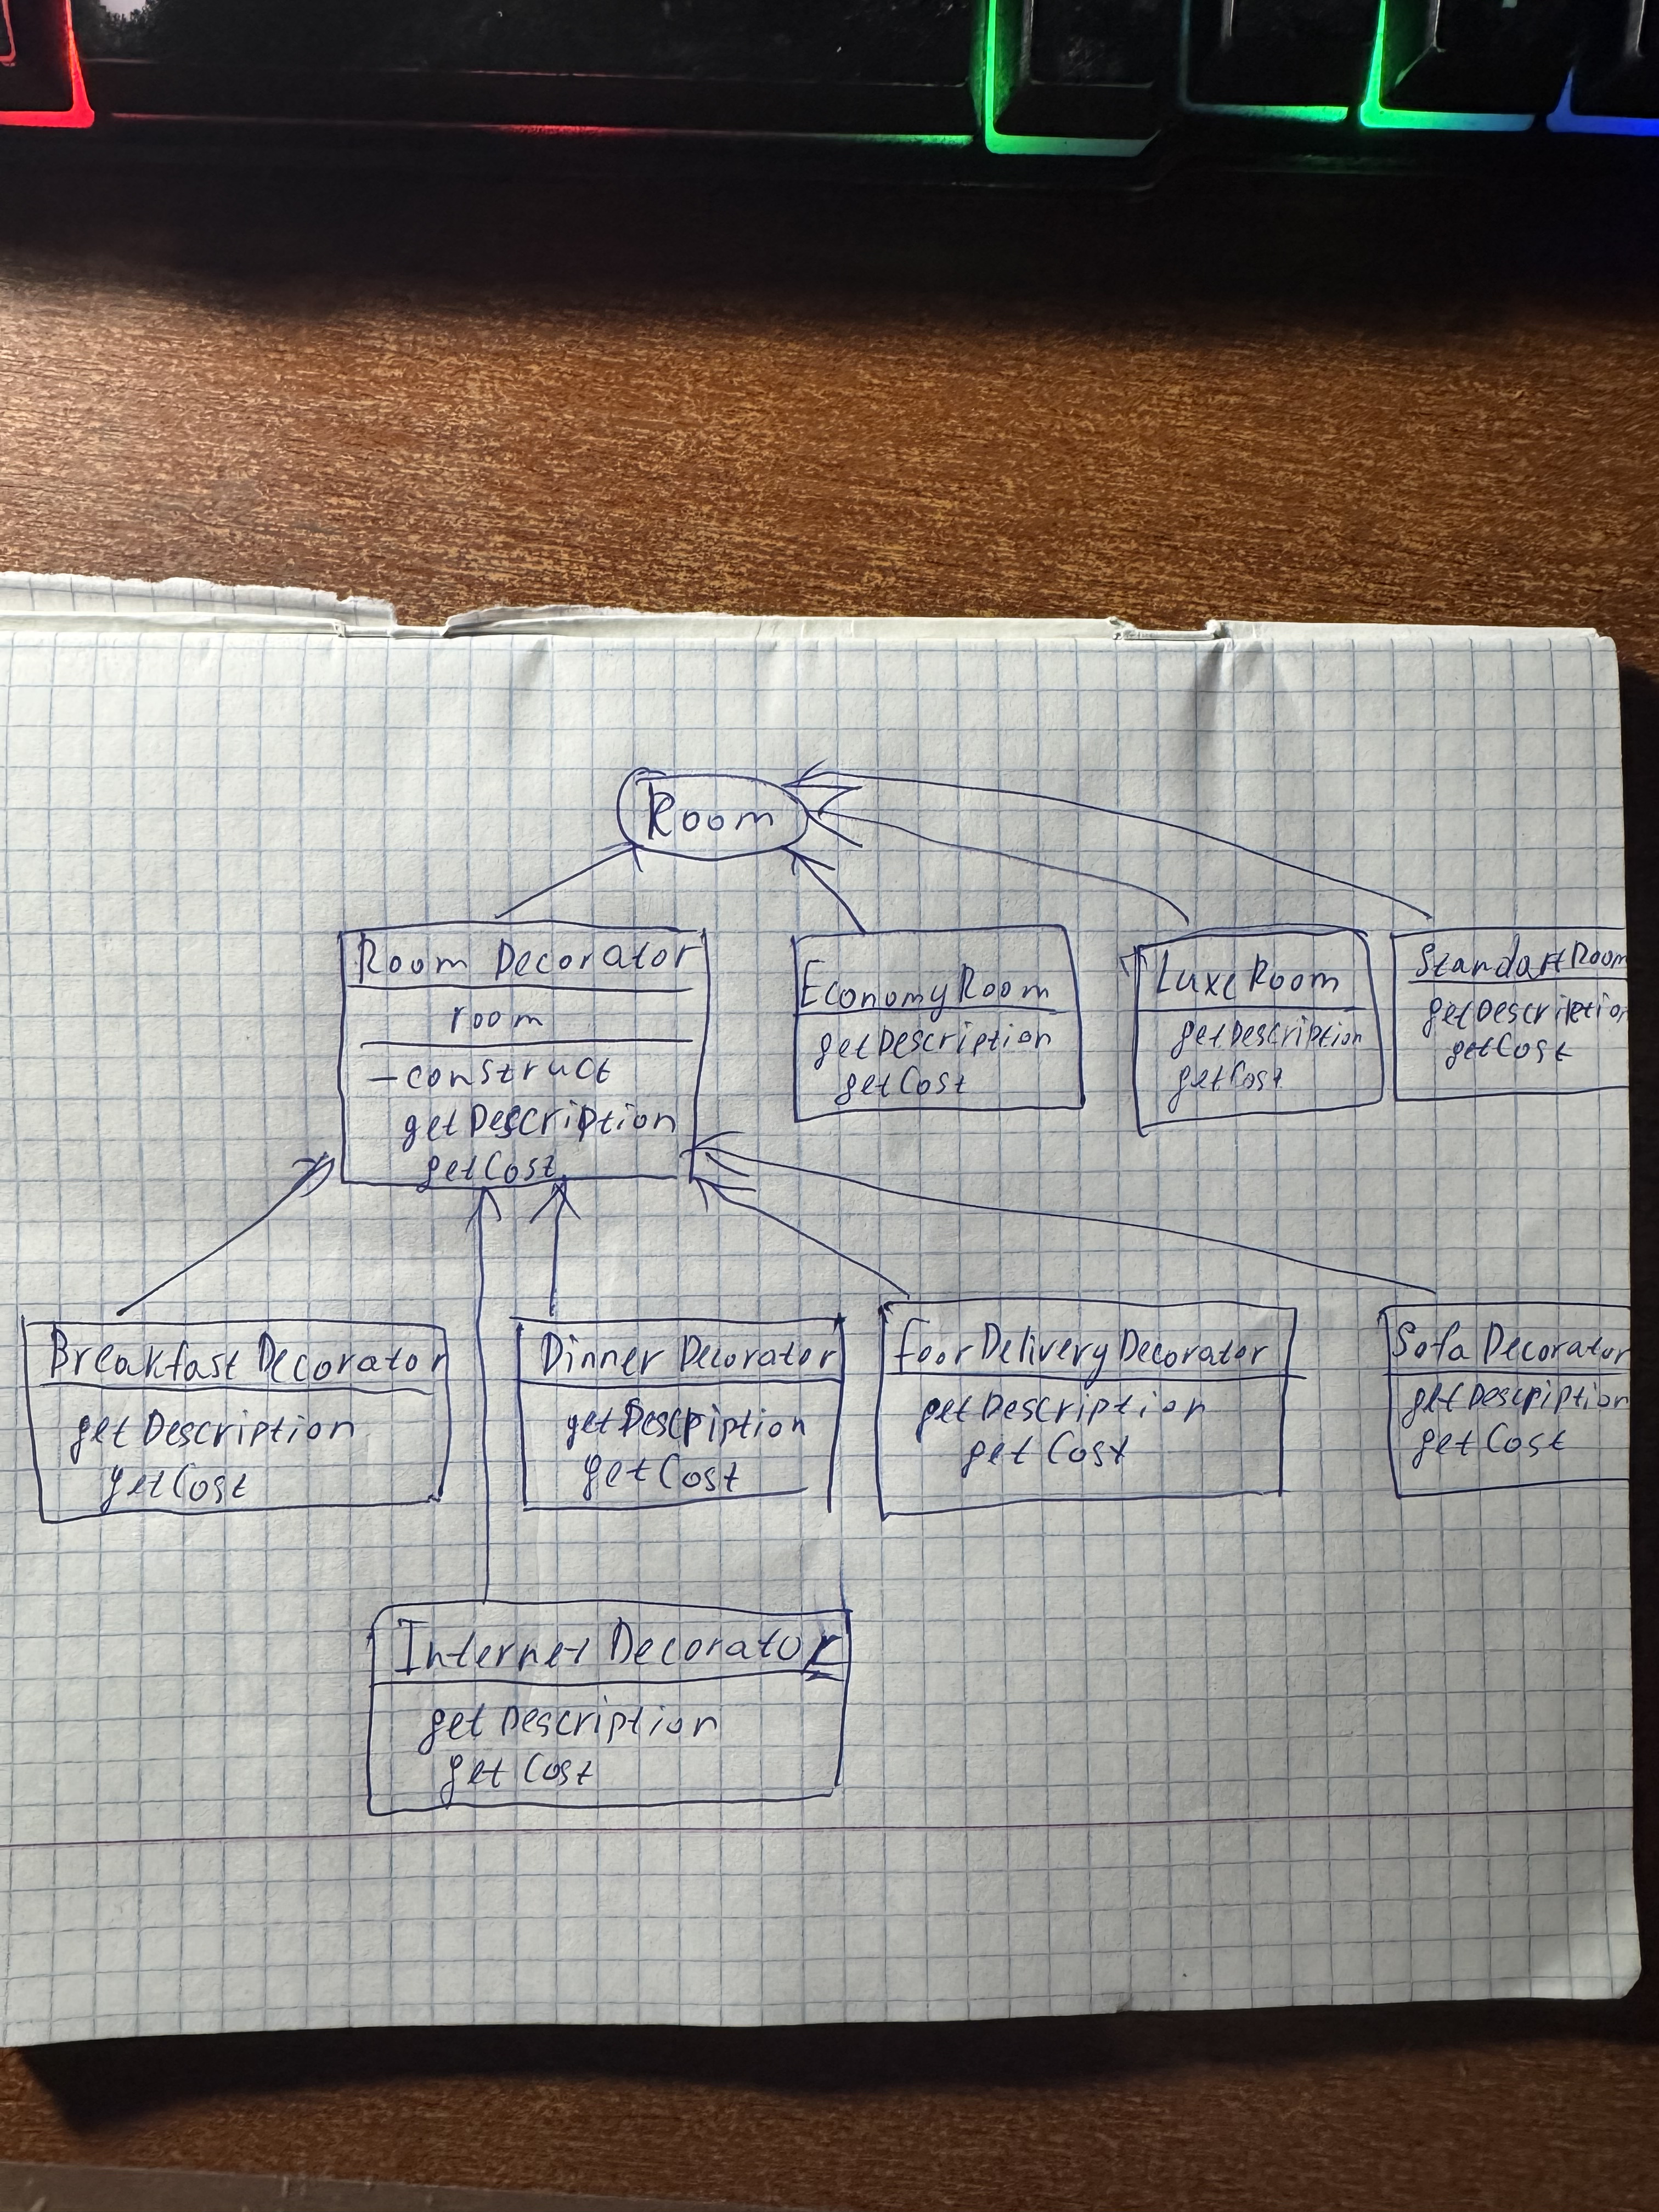 Room
Room Decorator
room
—construct
getDescription
getCost
EconomyRoom
getDescription
getCost
LuxeRoom
getDescription
getCost
StandartRoom
getDescription
getCost
Breakfast Decorator
getDescription
getCost
Dinner Decorator
getDescription
getCost
FoorDeliveryDecorator
getDescription
getCost
Sofa Decorator
getDescription
getCost
Internet Decorator
getDescription
getCost